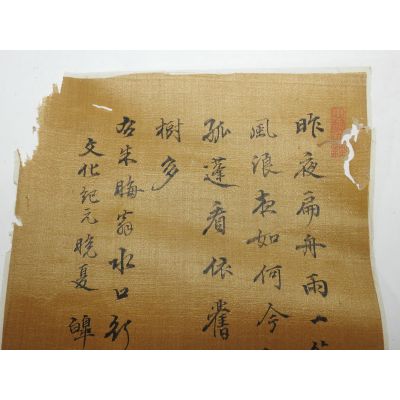 昨夜扁舟雨一
風浪夜如何今
孤蓬看依舊
樹多
右朱晦翁水口行
文化記元晓夏